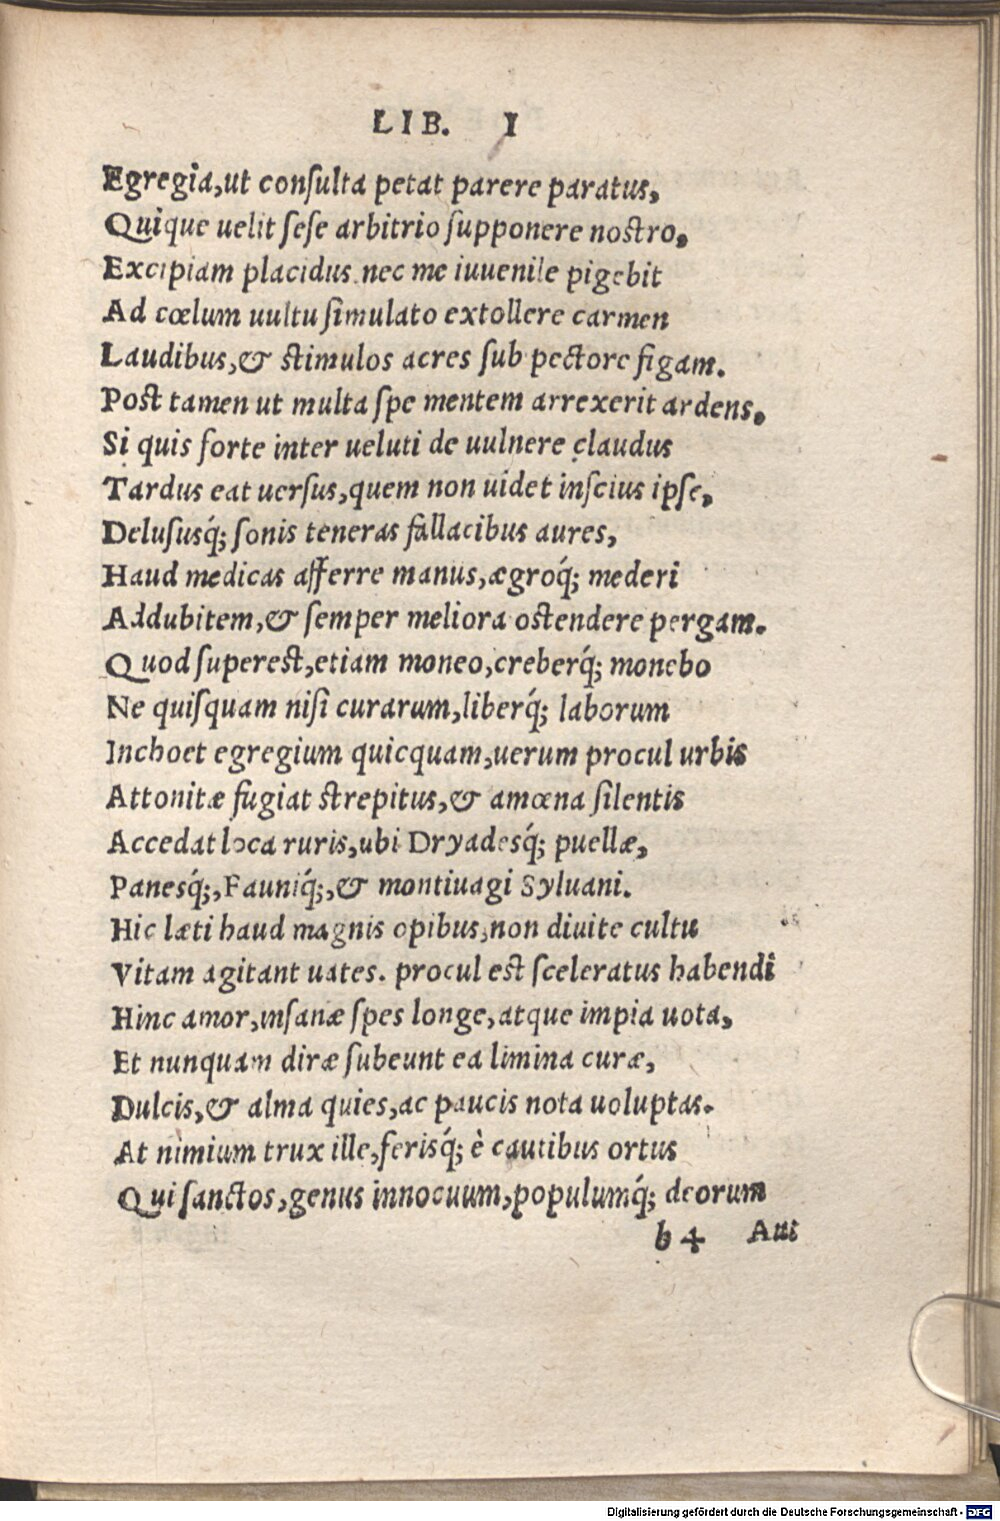 LIB. I
Egregia,ut conſulta petat parere paratus,
Quique uelit ſeſe arbitrio ſupponere noſtro,
Excipiam placidus.nec me iuuenile pigebit
Ad cœlum uultu ſimulato extollere carmen
Laudibus,& ſtimulos acres ſub pectore figam.
Poſt tamen ut multa ſpe mentem arrexerit ardens,
Si quis forte inter ueluti de uulnere claudus
Tardus eat uerſus,quem non uidet inſcius ipſe,
Deluſusq́; ſonis teneras fallacibus aures,
Haud medicas afferre manus,ægroq́; mederi
Addubitem,& ſemper meliora oſtendere pergam.
Quod ſupereſt,etiam moneo,creberq́; monebo
Ne quiſquam niſi curarum,liberq́; laborum
Inchoet egregium quicquam,uerum procul urbis
Attonitæ fugiat ſtrepitus,& amœna ſilentis
Accedat loca ruris,ubi Dryadesq́; puellæ,
Panesq́;,Fauniq́;,& montiuagi Syluani.
Hic læti haud magnis opibus,non diuite cultu
Vitam agitant uates. procul eſt ſceleratus habendi
Hinc amor,inſanæ ſpes longe,atque impia uota,
Et nunquam diræ ſubeunt ea limina curæ,
Dulcis,& alma quies,ac paucis nota uoluptas.
At nimium trux ille,ferisq́; è cautibus ortus
Qui ſanctos,genus innocuum,populumq́; deorum
b 4 Aut
Digitalisierung gefördert durch die Deutsche Forschungsgemeinschaft - DFG